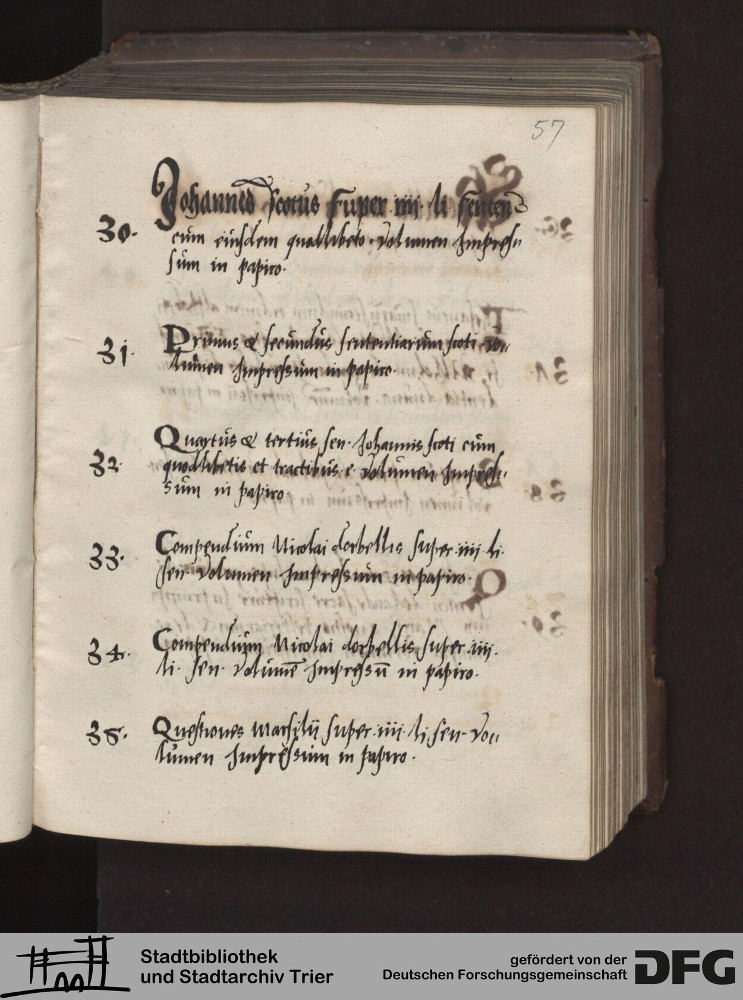 57
30. Johannes scotus super iiii li senten
cum eiusdem quollibeto. Volumen Impres,,
sum in papiro.
31. Primus & secundus sententiarum scoti vo,,
lumen Impressum in papiro.
32. Quartus & tertius sen. Johannis scoti cum
quodlibetis et tractibus volumen Impres,,
sum in papiro.
33. Compendium Nicolai dorbellis super iiii li.
sen. Volumen Impressum in papiro.
34. Compendium Nicolai dorbellis super iiii.
li. sen. Volumē Impressū in papiro.
35. Questiones Marsilij super iiii li. sen. Vo,,
lumen Impressum in papiro.
Stadtbibliothek
und Stadtarchiv Trier
gefördert von der
Deutschen Forschungsgemeinschaft
DFG